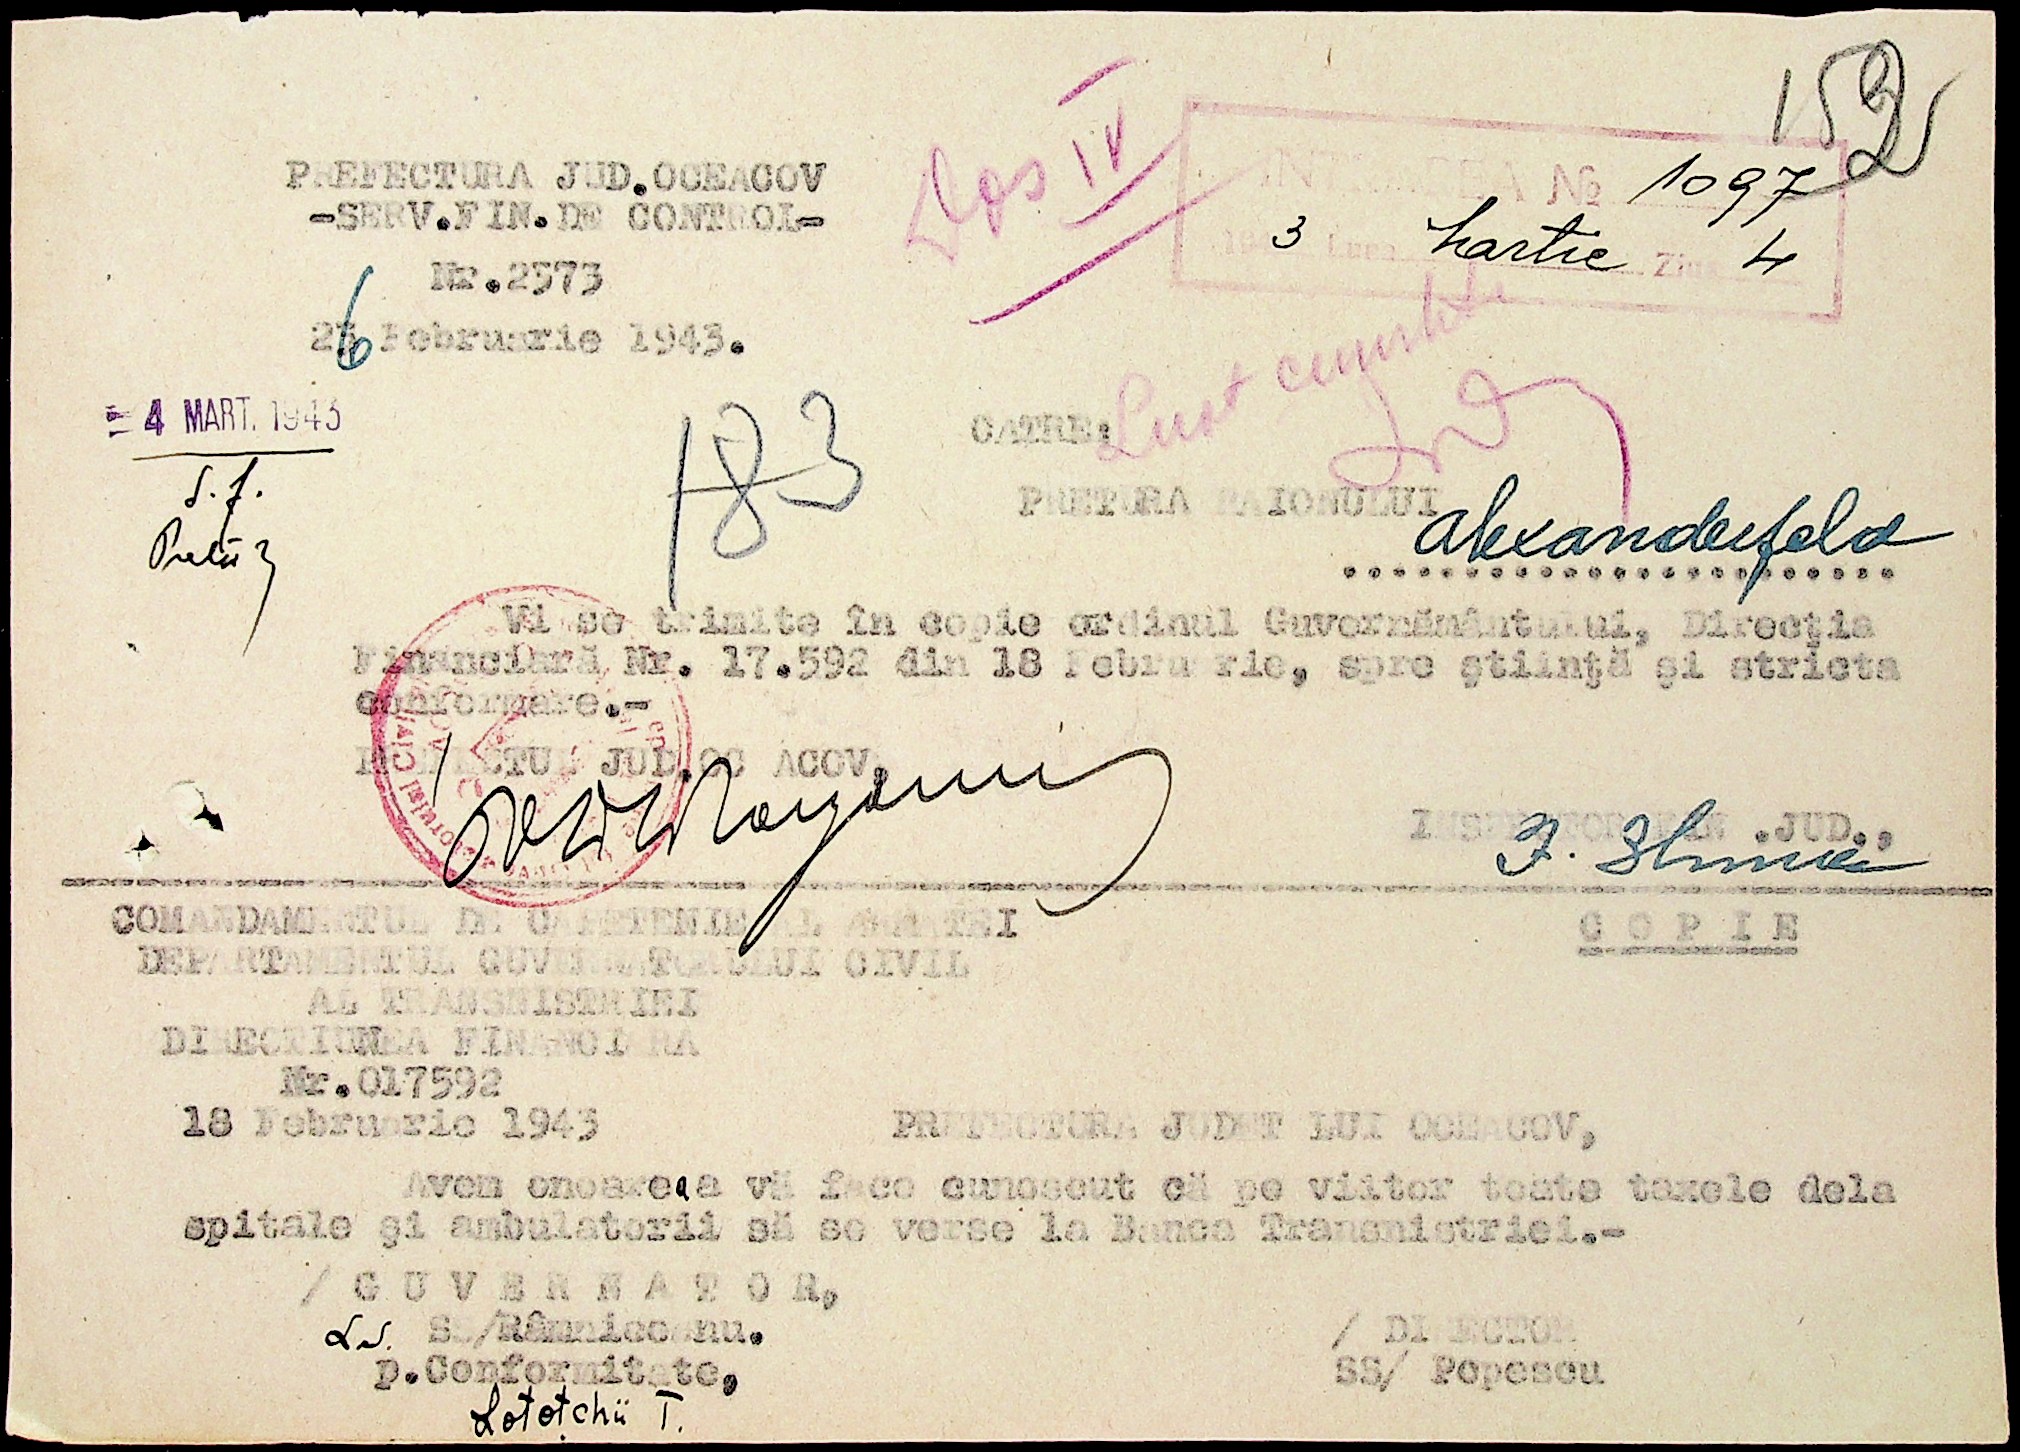 152
Dos IV
INTRAREA № 1097
194 3 Luna Martie Ziua 4
PREFECTURA JUD.OCEACOV
-SERV.FIN.DE CONTROL-
Nr.2573
26 Februarie 1943.
4 MART. 1943
S. f.
183
CATRE:
PRETURA RAIONULUI
Alexanderfeld
Vi se trimite în copie ordinul Guvernământului, Direcţia
Financiară Nr. 17.592 din 18 Februarie, spre ştiinţă şi stricta
conformare.-
PREFECTUL JUD.OCEACOV,
INSPECTOR FIN.JUD.,
COMANDAMENTUL DE CAPETENIE AL ARMATEI
DEPARTAMENTUL GUVERNATORULUI CIVIL
AL TRANSNISTRIEI
DIRECTIUNEA FINANCIARA
Nr.017592
18 Februarie 1943
C O P I E
PREFECTURA JUDETULUI OCEACOV,
Avem onoarea a vă face cunoscut că pe viitor toate taxele dela
spitale şi ambulatorii să se verse la Banca Transnistriei.-
/ G U V E R N A T O R,
L.S. SS/Râmniceanu.
p.Conformitate,
Lototchii T.
/ DIRECTOR
SS/ Popescu